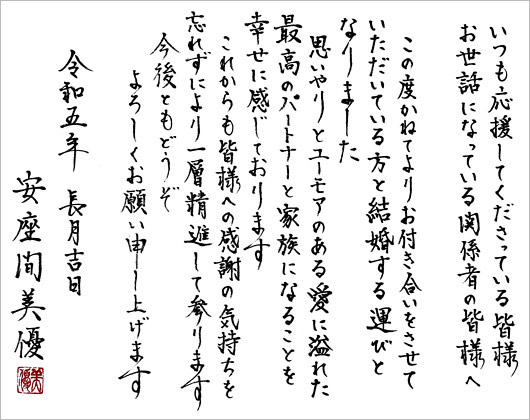 いつも応援してくださっている皆様
お世話になっている関係者の皆様へ
この度かねてよりお付き合いをさせて
いただいている方と結婚する運びと
なりました
思いやりとユーモアのある愛に溢れた
最高のパートナーと家族になることを
幸せに感じております
これからも皆様への感謝の気持ちを
忘れずにより一層精進して参ります
今後ともどうぞ
よろしくお願い申し上げます
令和五年 長月吉日
安座間美優
美優